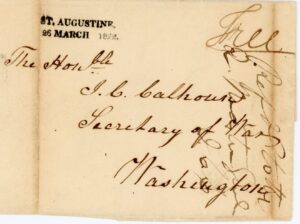 ST. AUGUSTINE,
26 MARCH 182
Free
The Honble
J. C. Calhoun
Secretary of War
Washington